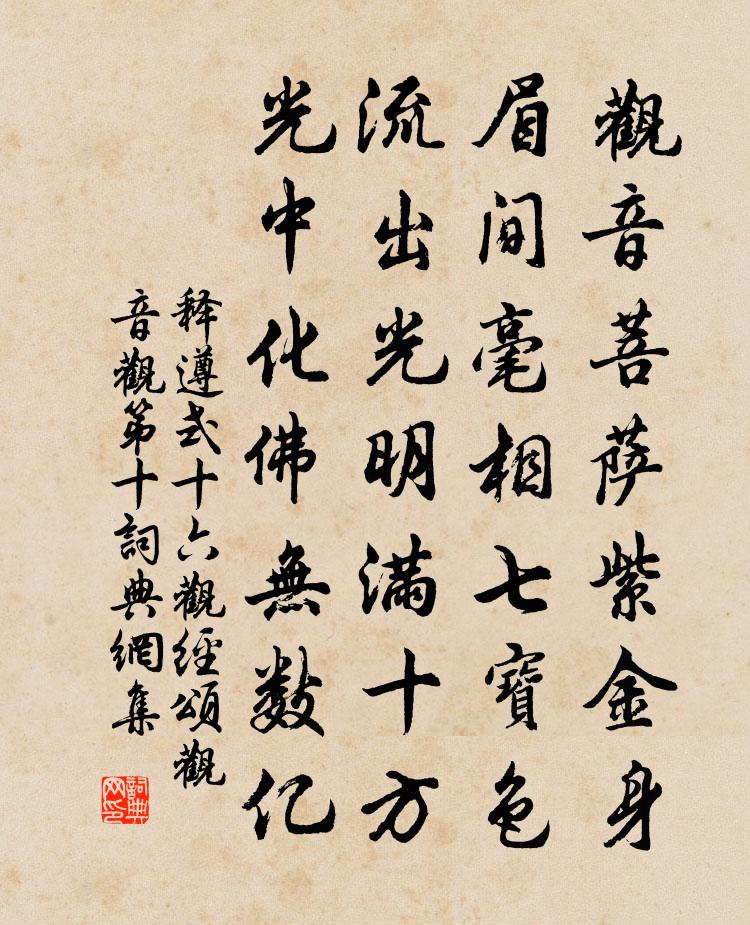 觀音菩萨紫金身
眉间毫相七寶色
流出光明满十方
光中化佛無數亿
释遵式十六觀經頌觀
音觀第十詞典網集
詞典网印